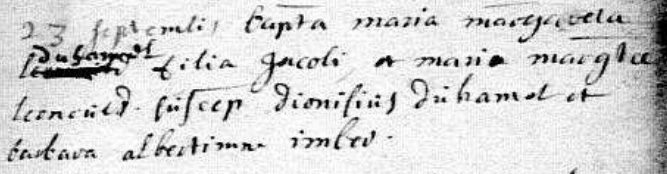 23 septembris bapta maria margareta
duhamel filia Jacobi et maria margtae
suscep dionisius duhamel et
barbara albertina imber.